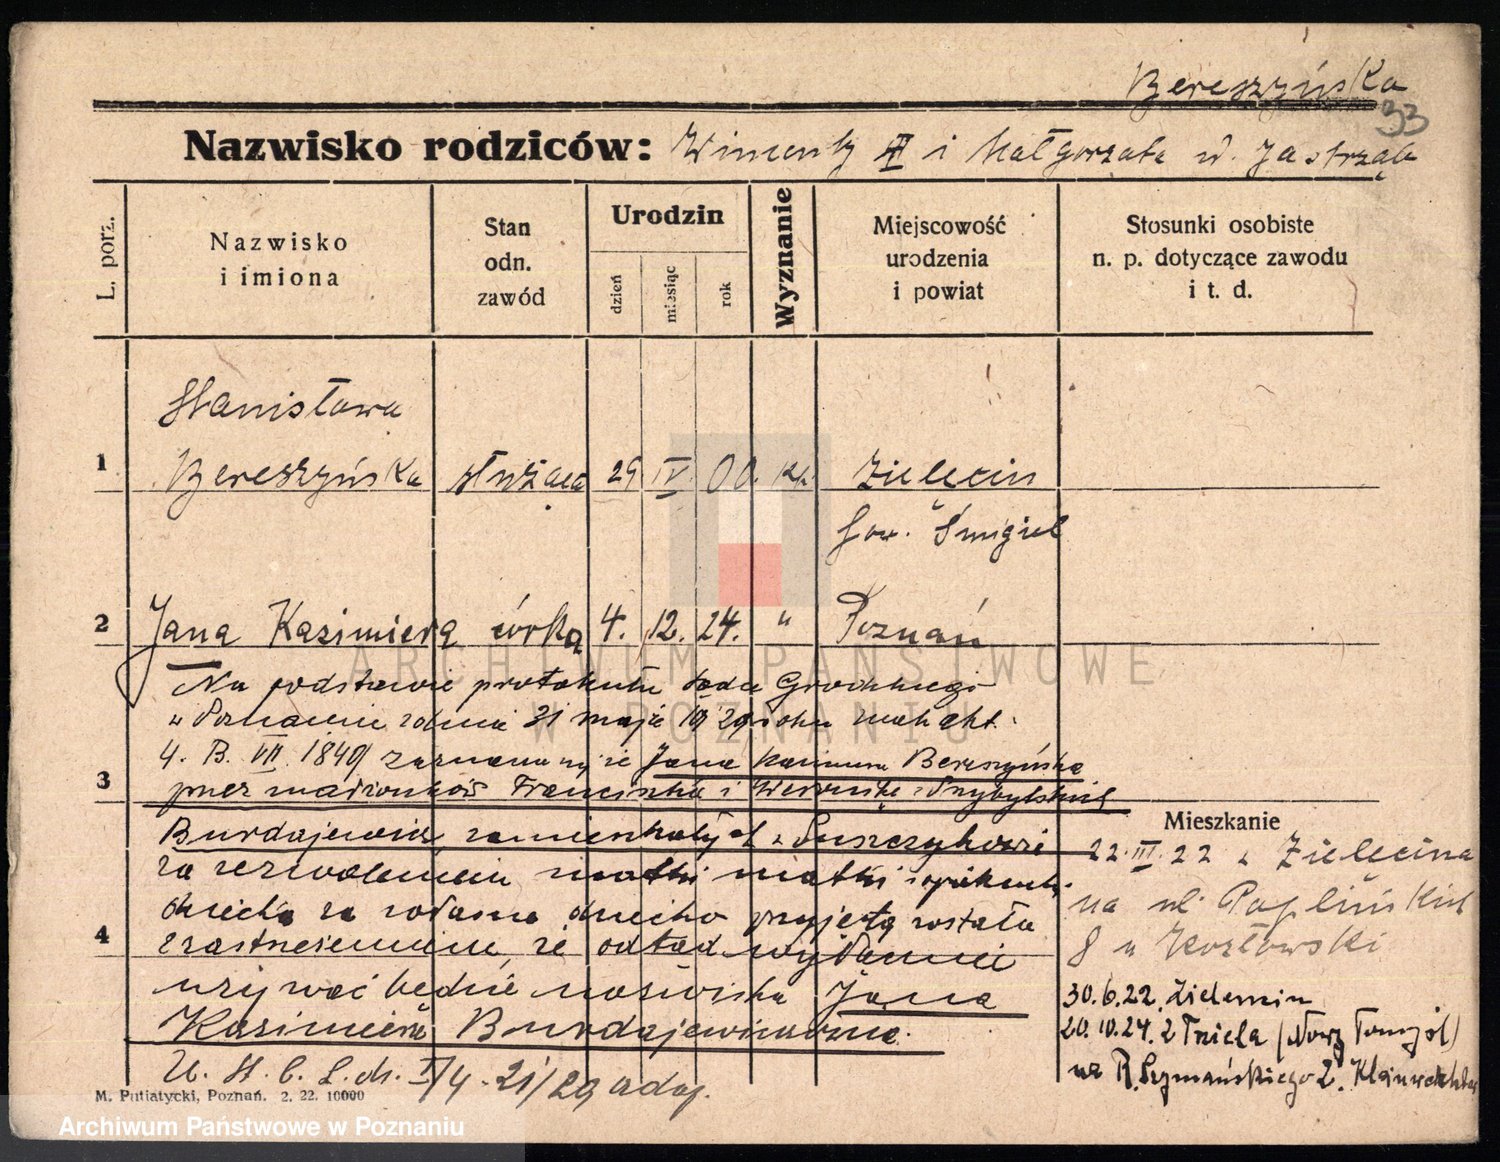 Bereszyńska
33
Nazwisko rodziców: Wincenty i Małgorzata d. Jastrząb
L. porz.
Nazwisko i imiona
Stan odn. zawód
Urodzin
dzień
miesiąc
rok
Wyznanie
Miejscowość urodzenia i powiat
Stosunki osobiste n. p. dotyczące zawodu i t. d.
Stanisława
1 Bereszyńska służąca 29 IV. 00. kat. Zielęcin
pow. Śmigiel
2 Jana Kazimiera córka 4. 12. 24. " Poznań
Na podstawie protokułu Sądu Grodzkiego
w Poznaniu z dnia 31 maja 1929 roku akt.
4. B. VII. 1849 zaznacza się że Jana Kazimiera Bereszyńska
3 przez małżonków Franciszka i Weronikę z Przybylskich
Burdajewicz, zamieszkałych w Suszczykowie
za zezwoleniem matki i opiekuna
dziecka za własne dziecko przyjętą została
4 z zastrzeżeniem, że odtąd
używać będzie nazwiska Jana
Kazimiera Burdajewiczówna.
U. St. C. L. dz. I/4-21/29 adop.
Mieszkanie
22.III.22 z Zielęcina
na ul. Poplińskich
8 u Kozłowski
30.6.22. Zielęcin
20.10.24. z (Nowy Tomyśl)
M. Putiatycki, Poznań. 2. 22. 10000
ARCHIWUM PAŃSTWOWE
W POZNANIU
Archiwum Państwowe w Poznaniu